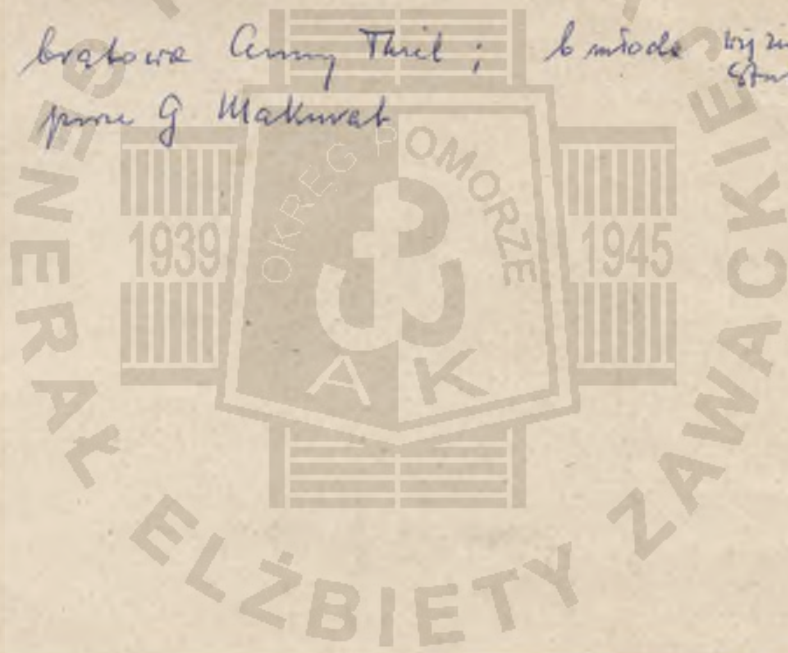 bratowa Anny Thiel ; b młoda
przez G Makurat
OKRĘG POMORZE
1939 1945
A K
GENERAŁ ELŻBIETY ZAWACKIE